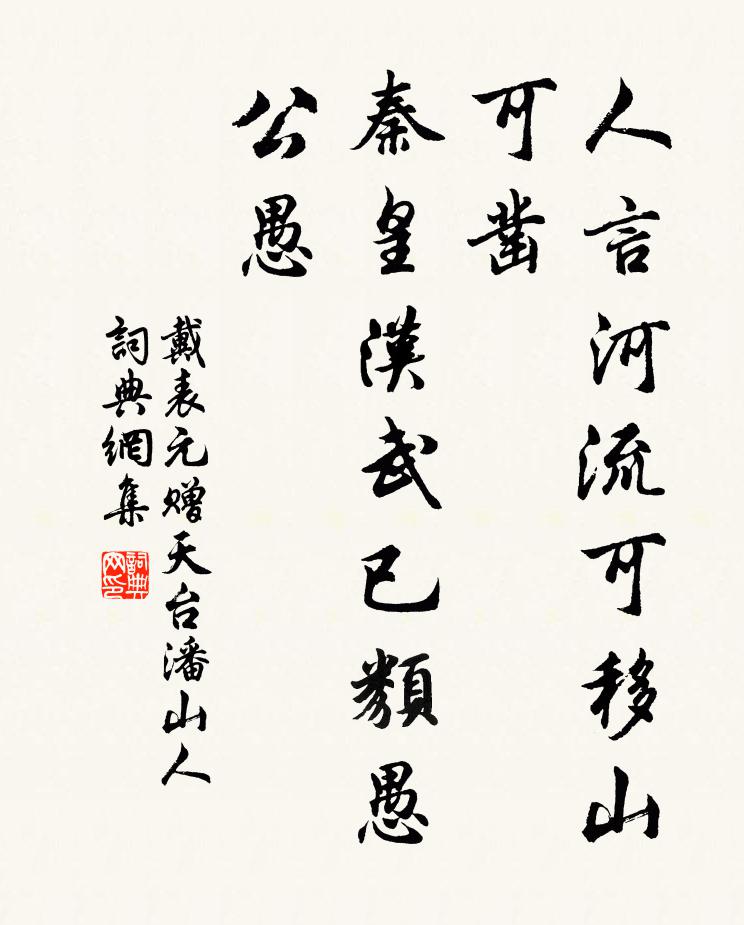 人言河流可移山
可凿
秦皇漢武已類愚
公愚
戴表元赠天台潘山人
詞典網集
詞典
网印